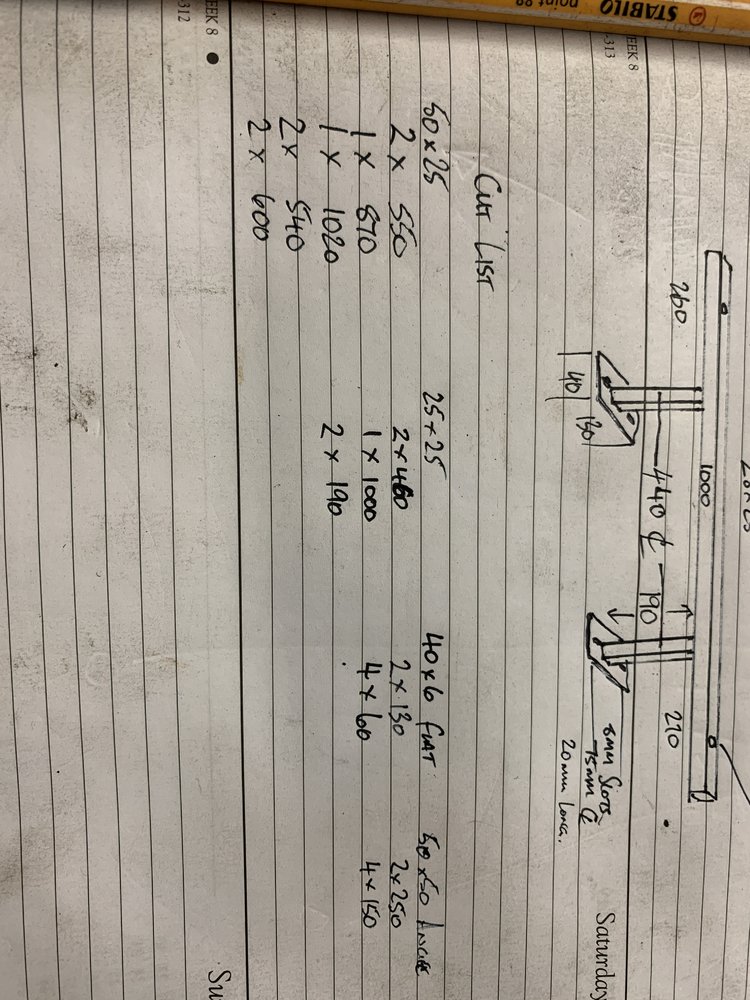 STABILO point 88
1000
260
270
440 ℄ 190
40
130
8mm Slots
75mm ℄
20mm long.
EEK 8
-313
Saturday
CUT LIST
50 x 25 25 x 25 40 x 6 FLAT 50 x 50 ANGLE
2 x 550 2 x 460 2 x 130 2 x 250
1 x 870 1 x 1000 4 x 60 4 x 150
1 x 1020 2 x 190
2 x 540
2 x 600
EEK 8
312
Su